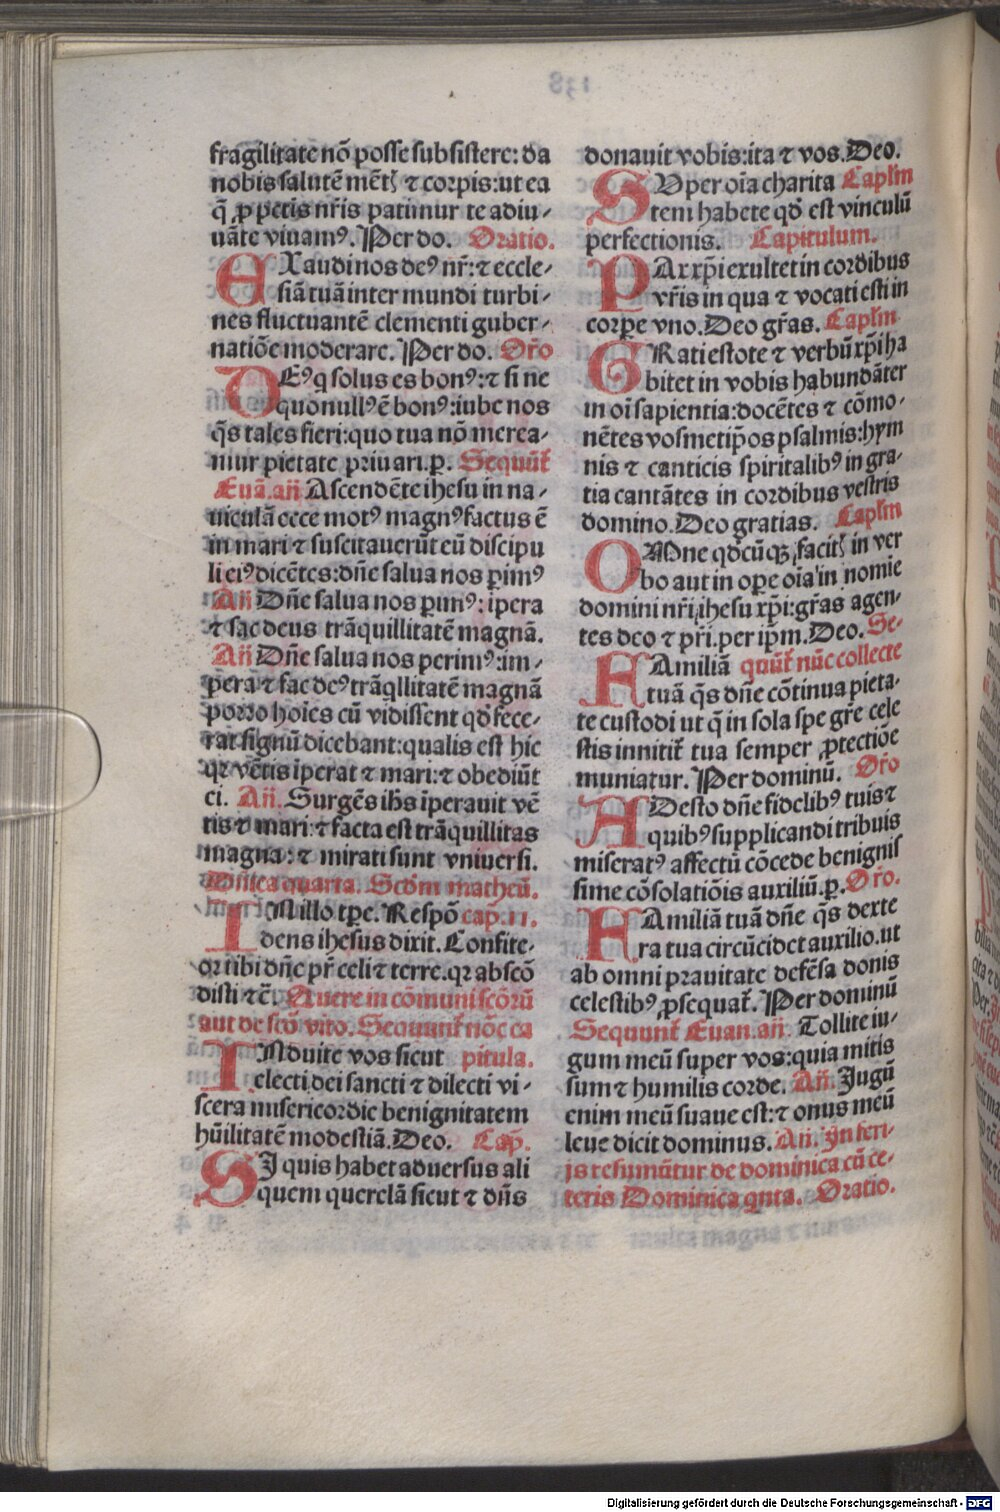 fragilitate nō posse subsistere: da
nobis salutē mētꝭ ⁊ corpis: ut ea
q̄ ꝓ pctis nr̄is patimur te adiu-
uāte viuamꝰ. Per do. Oratio.
EXaudi nos deꝰ nr̄: ⁊ eccle-
siā tuā inter mundi turbi-
nes fluctuantē clementi guber-
natiōe moderare. Per do. Or̄o
DEꝰ q̇ solus es bonꝰ: ⁊ si ne
quo nullꝰ ē bonꝰ: iube nos
q̄s tales fieri: quo tua nō merea-
mur pietate priuari. p. Sequūt̄
Euā. añ Ascendēte ihesu in na-
uiculā ecce motꝰ magnꝰ factus ē
in mari ⁊ suscitauerūt eū discipu
li eiꝰ dicētes: dn̄e salua nos p̄imꝰ
Añ Dn̄e salua nos p̄imꝰ: īpera
⁊ fac deus trāquillitatē magnā.
Añ Dn̄e salua nos perimꝰ: im-
pera ⁊ fac deꝰ trāq̇llitatē magnā
porro hoīes cū vidissent qd̄ fece-
rat signū dicebant: qualis est hic
qꝛ vētis īperat ⁊ mari: ⁊ obediūt
ei. Añ. Surgēs ihs īperauit vē
tis ⁊ mari: ⁊ facta est trāquillitas
magna: ⁊ mirati sunt vniuersi.
Dn̄ica quarta. Scd̄m matheū.
IN illo tpe. Respō cap. 11.
dens ihesus dixit. Confite-
or tibi dn̄e pr̄ celi ⁊ terre. qꝛ abscō
disti ⁊c̄. Quere in cōmuni scōrū
aut de scō vito. Sequunt̄ nōe ca
INduite vos sicut pitula.
electi dei sancti ⁊ dilecti vi-
scera misericordie benignitatem
hūilitatē modestiā. Deo. Cap̄.
SI quis habet aduersus ali
quem querelā sicut ⁊ dn̄s
donauit vobis: ita ⁊ vos. Deo.
SUper oīa charita Caplm̄
tem habete qd̄ est vinculū
perfectionis. Capitulum.
PAx xp̄i exultet in cordibus
vr̄is in qua ⁊ vocati esti in
corpe vno. Deo gr̄as. Caplm̄
GRati estote ⁊ verbū xp̄i ha
bitet in vobis habundāter
in oī sapientia: docētes ⁊ cōmo-
nētes vosmetip̄os psalmis: hym
nis ⁊ canticis spiritalibꝰ in gra-
tia cantātes in cordibus vestris
domino. Deo gratias. Caplm̄
OMne qd̄cūqꝫ facitꝭ in ver
bo aut in ope oīa in nomīe
domini nr̄i ihesu xp̄i: gr̄as agen-
tes deo ⁊ pr̄i. per ip̄m. Deo. Se-
FAmiliā quūt̄ nūc collecte
tuā q̄s dn̄e cōtinua pieta-
te custodi ut q̄ in sola spe gr̄e cele
stis innitit̄ tua semper ꝓtectiōe
muniatur. Per dominū. Or̄o
ADesto dn̄e fidelibꝰ tuis ⁊
quibꝰ supplicandi tribuis
miseratꝰ affectū cōcede benignis
sime cōsolatiōis auxiliū. p. Or̄o.
FAmiliā tuā dn̄e q̄s dexte
ra tua circūcidet auxilio. ut
ab omni prauitate defēsa donis
celestibꝰ ꝓsequat̄. Per dominū
Sequunt̄ Euan. añ. Tollite iu-
gum meū super vos: quia mitis
sum ⁊ humilis corde. Añ. Jugū
enim meū suaue est: ⁊ onus meū
leue dicit dominus. Añ. In feri-
js resumūtur de dominica cū ce-
teris Dominica qnta. Oratio.
Digitalisierung gefördert durch die Deutsche Forschungsgemeinschaft - DFG